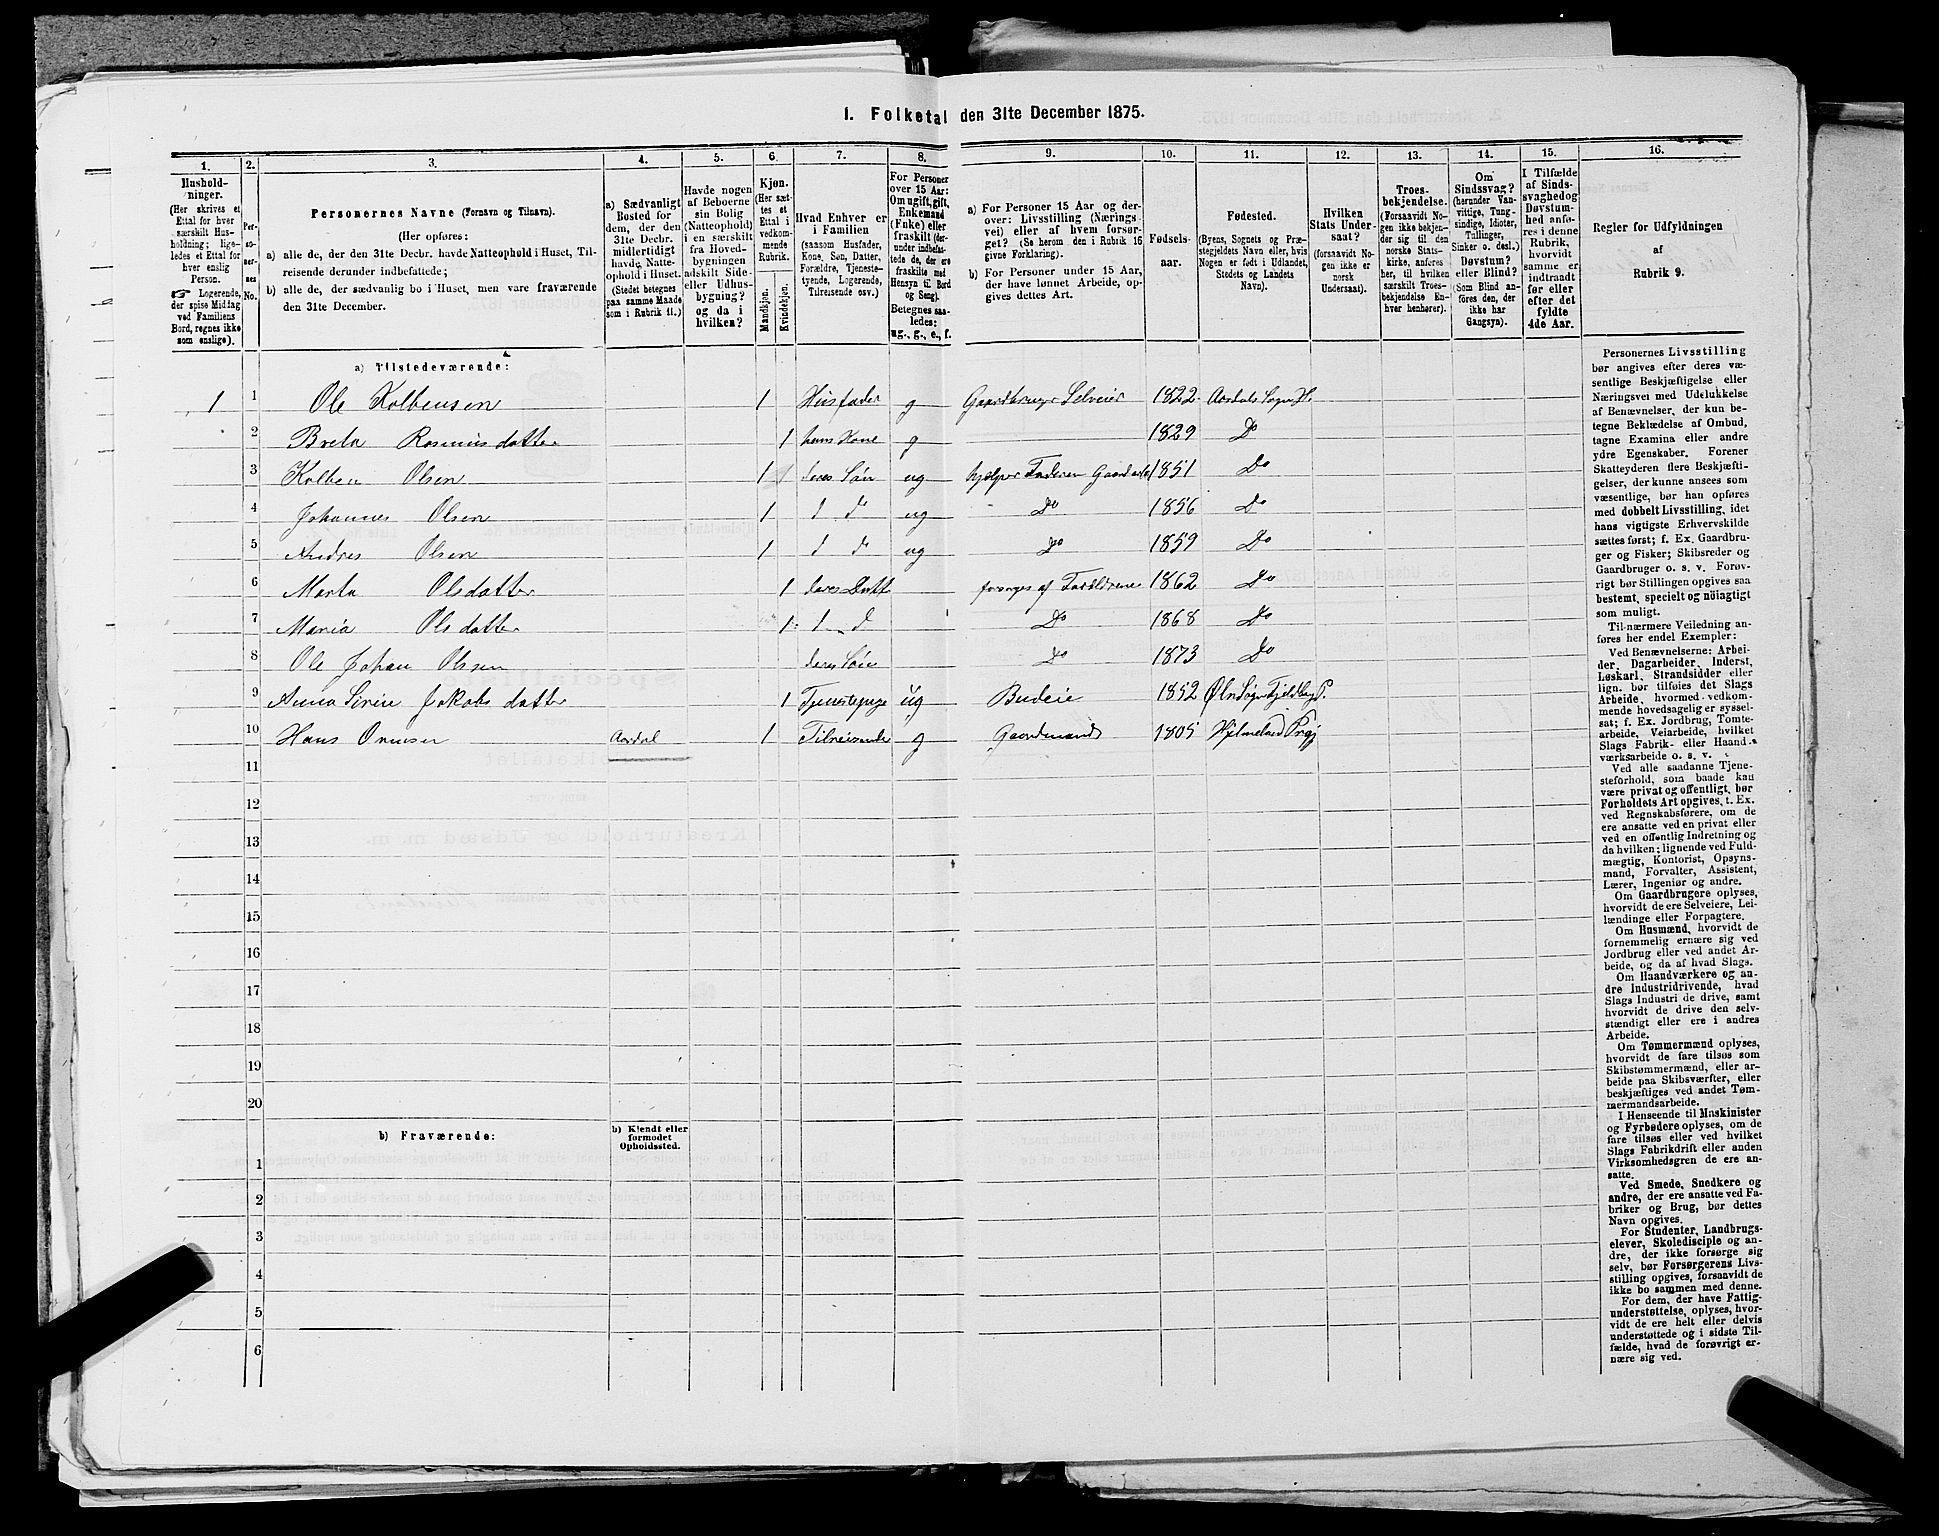 1. Folketal den 31te December 1875.
1. 2. 3. 4. 5. 6. 7. 8. 9. 10. 11. 12. 13. 14. 15. 16.
Hushold-
ninger.
(Her skrives et
Ettal for hver
særskilt Hus-
holdning; lige-
ledes et Ettal for
hver enslig
Person.
☞ Logerende,
der spise Middag
ved Familiens
Bord, regnes ikke
som enslige).
Per-
so-
ner-
nes
No.
Personernes Navne (Fornavn og Tilnavn).
(Her opføres:
a) alle de, der den 31te Decbr. havde Natteophold i Huset, Til-
reisende derunder indbefattede;
b) alle de, der sædvanlig bo i Huset, men vare fraværende
den 31te December.
a) Sædvanligt
Bosted for
dem, der den
31te Decbr.
midlertidigt
havde Natte-
ophold i Huset.
(Stedet betegnes
paa samme Maade
som i Rubrik 11.)
Havde nogen
af Beboerne
sin Bolig
(Natteophold)
i en særskilt
fra Hoved-
bygningen
adskilt Side-
eller Udhus-
bygning?
og da i
hvilken?
Kjøn.
(Her sæt-
tes et
Ettal i
vedkom-
mende
Rubrik.
Mandkjøn.
Kvindekjøn.
Hvad Enhver er
i Familien
(saasom Husfader,
Kone, Søn, Datter,
Forældre, Tjeneste-
tyende, Logerende,
Tilreisende osv.)
For Personer
over 15 Aar:
Om ugift, gift,
Enkemand
(Enke) eller
fraskilt (der-
under indbefat-
tede de, der ere
fraskilte med
Hensyn til Bord
og Seng).
Betegnes saa-
ledes:
ug., g., e., f.
a) For Personer 15 Aar og der-
over: Livsstilling (Nærings-
vei) eller af hvem forsør-
get? (Se herom den i Rubrik 16
givne Forklaring).
b) For Personer under 15 Aar,
der have lønnet Arbeide, op-
gives dettes Art.
Fødsels-
aar.
Fødested.
(Byens, Sognets og Præ-
stegjeldets Navn eller, hvis
Nogen er født i Udlandet,
Stedets og Landets
Navn).
Hvilken
Stats Under-
saat?
(forsaavidt No-
gen ikke er
norsk
Undersaat).
Troes-
bekjendelse.
(Forsaavidt No-
gen ikke bekjen-
der sig til den
norske Stats-
kirke, anføres
her, til hvilken
særskilt Troes-
bekjendelse En-
hver henhører).
Om
Sindssvag?
(herunder Van-
vittige, Tung-
sindige, Idioter,
Tullinger,
Sinker o. desl.)
Døvstum?
eller Blind?
(Som Blind an-
føres den, der
ikke har
Gangsyn).
I Tilfælde
af Sinds-
svaghed og
Døvstum-
hed anfø-
res i denne
Rubrik,
hvorvidt
samme er
indtraadt
før eller
efter det
fyldte
4de Aar.
Regler for Udfyldningen
af
Rubrik 9.
a) Tilstedeværende:
1 1 Ole Kolbensen 1 Husfader g Gaardbruger Selveier 1822 Aardals Sogn H.
2 Breta Rasmusdatter 1 hans Kone g 1829 Do
3 Kolben Olsen 1 deres Søn ug hjelper Faderen Gaardarb 1851 Do
4 Johannes Olsen 1 d d ug Do 1856 Do
5 Andres Olsen 1 d d ug Do 1859 Do
6 Marta Olsdatter 1 deres Datt forsørges af Forældrene 1862 Do
7 Maria Olsdatter 1 d d Do 1868 Do
8 Ole Johan Olsen deres Søn Do 1873 Do
9 Anna Sirine Jakobsdatter 1 Tjenestepige ug Budeie 1852 Ølen Sogn Fjeldberg P.
10 Hans Ormsen Aardal 1 Tilreisende g Gaardmand 1805 Hjelmeland Prgj
11
12
13
14
15
16
17
18
19
20
b) Fraværende:
b) Kjendt eller
formodet
Opholdssted.
1
2
3
4
5
6
Personernes Livsstilling
bør angives efter deres væ-
sentlige Beskjæftigelse eller
Næringsvei med Udelukkelse
af Benævnelser, der kun be-
tegne Beklædelse af Ombud,
tagne Examina eller andre
ydre Egenskaber. Forener
Skatteyderen flere Beskjæfti-
gelser, der kunne ansees som
væsentlige, bør han opføres
med dobbelt Livsstilling, idet
hans vigtigste Erhvervskilde
sættes først; f. Ex. Gaardbru-
ger og Fisker; Skibsreder og
Gaardbruger o. s. v. Forøv-
rigt bør Stillingen opgives saa
bestemt, specielt og nöiagtigt
som muligt.
Til nærmere Veiledning an-
føres her endel Exempler:
Ved Benævnelserne: Arbei-
der, Dagarbeider, Inderst,
Løskarl, Strandsidder eller
lign. bør tilføies det Slags
Arbeide, hvormed vedkom-
mende hovedsagelig er syssel-
sat; f. Ex. Jordbrug, Tomte-
arbeide, Veiarbeide, hvilket
Slags Fabrik- eller Haand-
værksarbeide o. s. v.
Ved alle saadanne Tjene-
steforhold, som baade kan
være privat og offentligt, bør
Forholdets Art opgives, t. Ex.
ved Regnskabsførere, om de
ere ansatte ved en privat eller
ved en offentlig Indretning og
da hvilken; lignende ved Fuld-
mægtig, Kontorist, Opsyns-
mand, Forvalter, Assistent,
Lærer, Ingeniør og andre.
Om Gaardbrugere oplyses,
hvorvidt de ere Selveiere, Lei-
lændinge eller Forpagtere.
Om Husmænd, hvorvidt de
fornemmelig ernære sig ved
Jordbrug eller ved andet Ar-
beide, og da af hvad Slags.
Om Haandværkere og an-
dre Industridrivende, hvad
Slags Industri de drive, samt
hvorvidt de drive den selv-
stændigt eller ere i andres
Arbeide.
Om Tømmermænd oplyses,
hvorvidt de fare tilsøs som
Skibstømmermænd, eller ar-
beide paa Skibsværfter, eller
beskjæftiges ved andet Tøm-
mermandsarbeide.
I Henseende til Maskinister
og Fyrbødere oplyses, om de
fare tilsøs eller ved hvilket
Slags Fabrikdrift eller anden
Virksomhedsgren de ere an-
satte.
Ved Smede, Snedkere og
andre, der ere ansatte ved Fa-
briker og Brug, bør dettes
Navn opgives.
For Studenter, Landbrugs-
elever, Skoledisciple og an-
dre, der ikke forsørge sig
selv, bør Forsørgerens Livs-
stilling opgives, forsaavidt de
ikke bo sammen med denne.
For dem, der have Fattig-
understøttelse, oplyses, hvor-
vidt de ere helt eller delvis
understøttede og i sidste Til-
fælde, hvad de forøvrigt er-
nære sig ved.